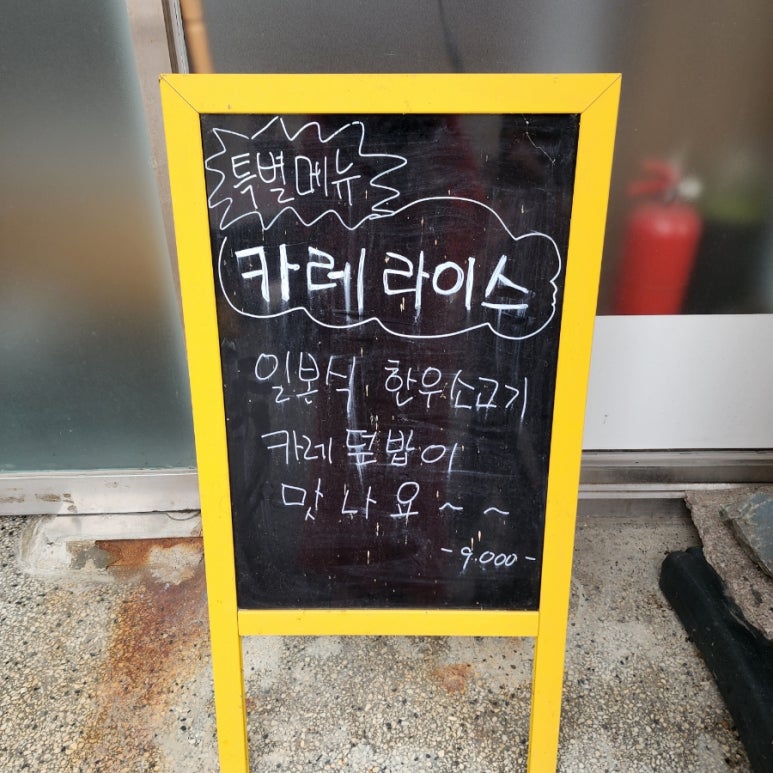 특별메뉴
카레라이스
일본식 한우소고기
카레덮밥이
맛나요~~
-9.000-